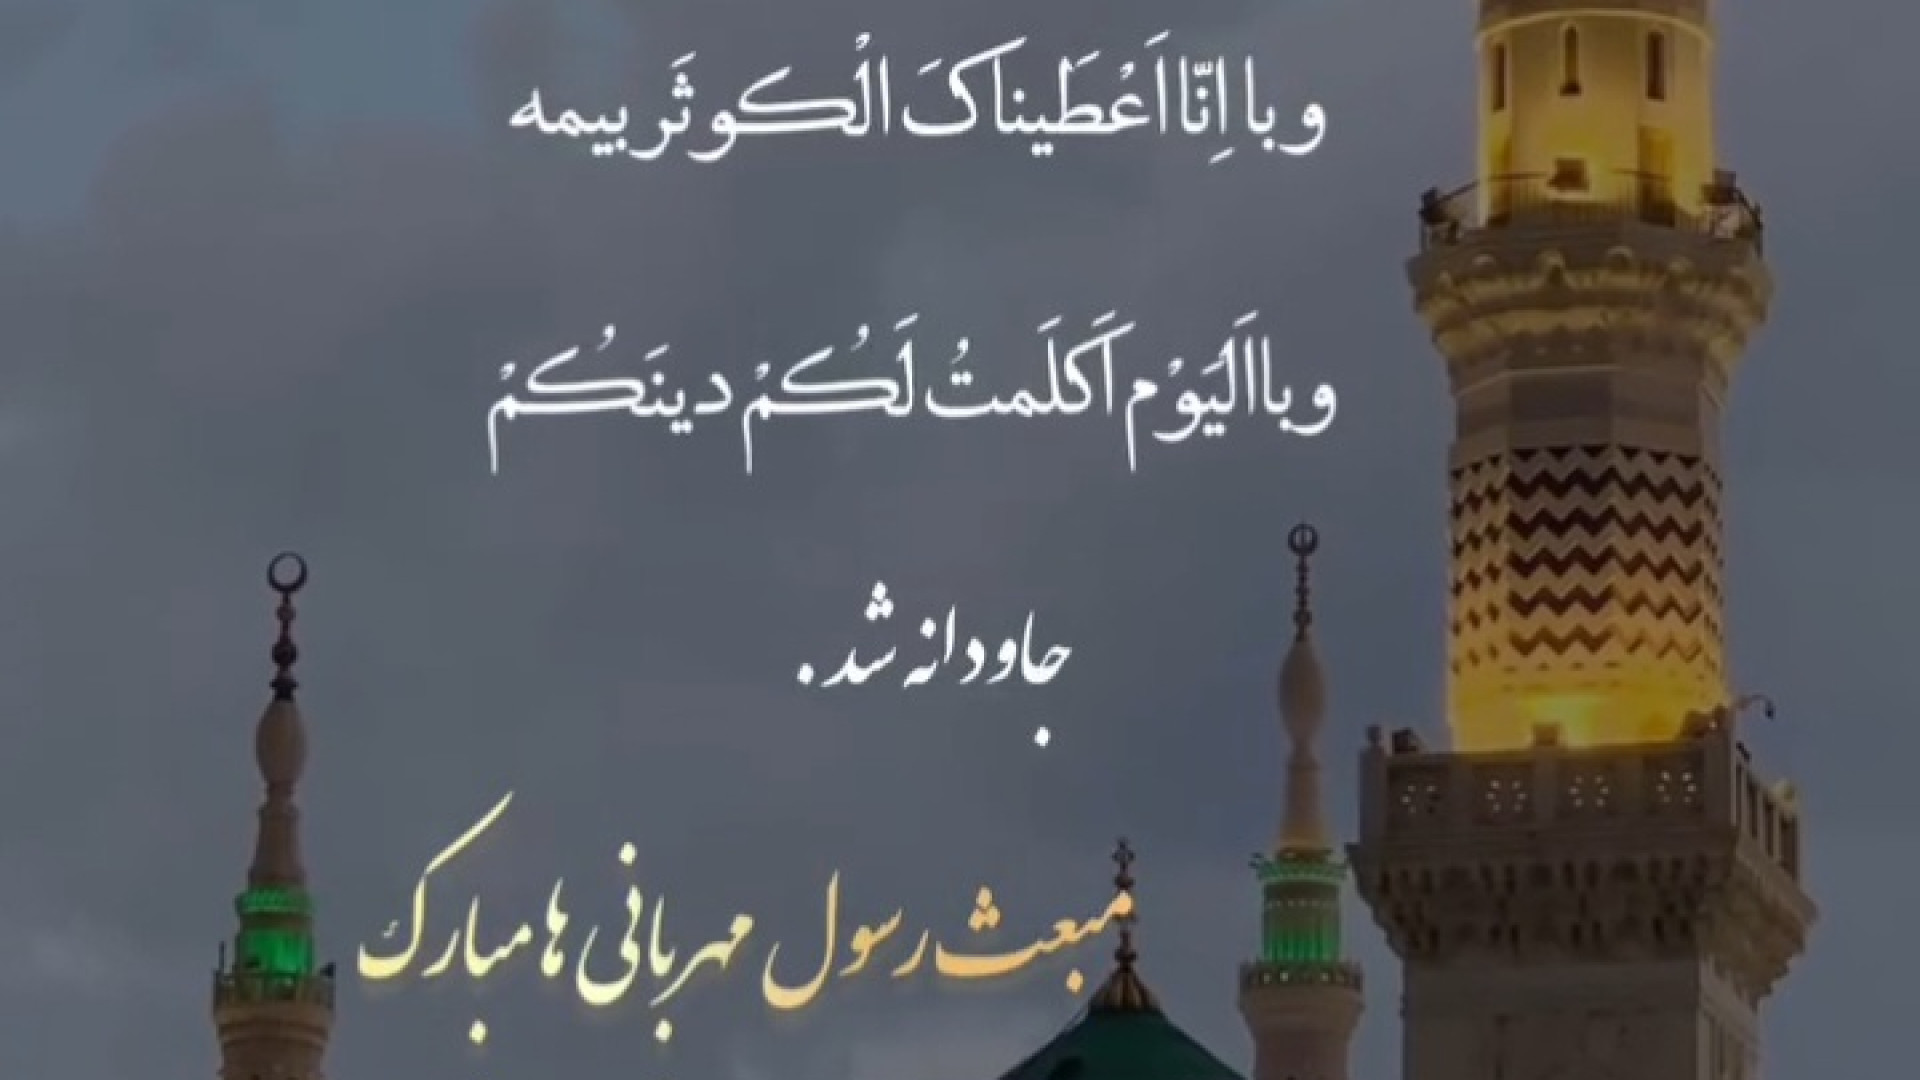 و با اِنّا اَعْطَیناکَ الْکوثَر بیمه
و با اَلیَوْم اَکلَمتُ لَکُمْ دینَکُمْ
جاودانه شد.
مبعث رسول مهربانی ها مبارک